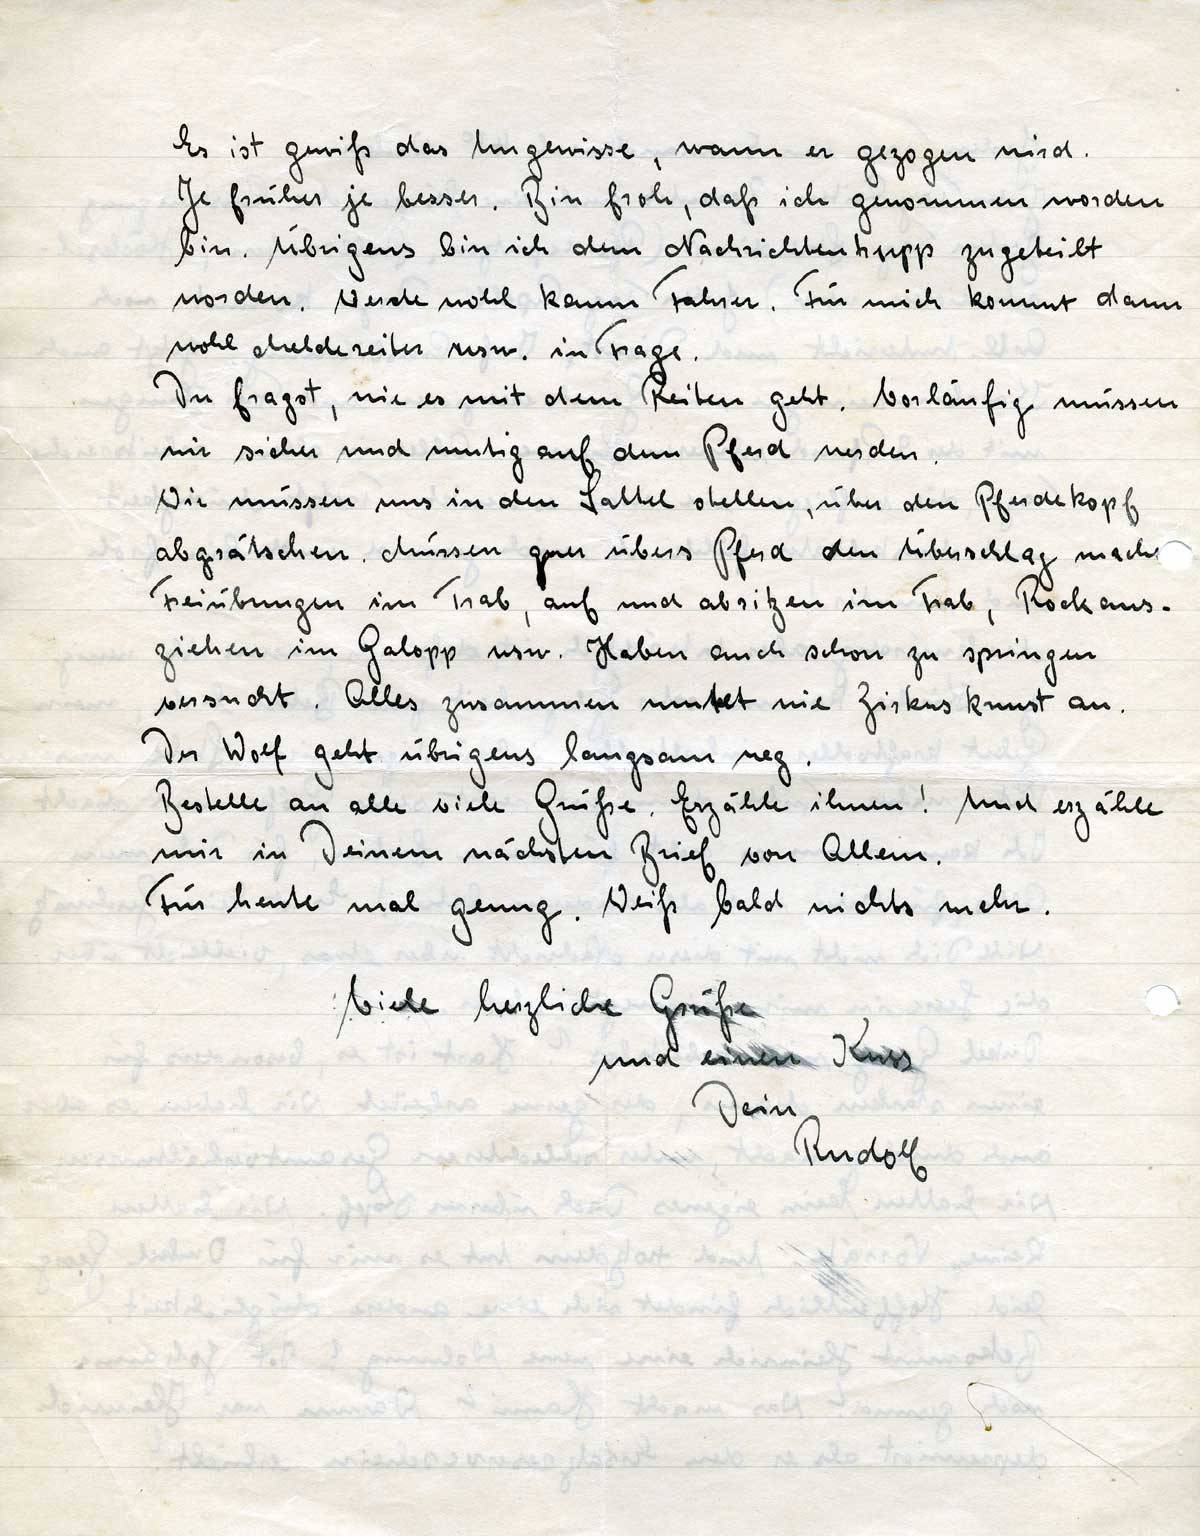 Es ist gewiß das Ungewisse, wann er gezogen wird.
Je früher je besser. Bin froh, daß ich genommen worden
bin. Übrigens bin ich dem Nachrichtentrupp zugeteilt
worden. Werde wohl kaum Fahrer. Für mich kommt dann
wohl Meldereiter usw. in Frage.
Du fragst, wie es mit dem Reiten geht. Vorläufig müssen
wir sicher und mutig auf dem Pferd werden.
Wir müssen uns in den Sattel stellen, über den Pferdekopf
abgrätschen. Müssen quer übers Pferd den Überschlag mache
Freiübungen im Trab, auf und absitzen im Trab, Rockaus-
ziehen im Galopp usw. Haben auch schon zu springen
versucht. Alles zusammen mutet wie Zirkuskunst an.
Der Wolf geht übrigens langsam weg.
Bestelle an alle viele Grüße. Erzähle ihnen! Und erzähle
mir in Deinem nächsten Brief von Allem.
Für heute mal genug. Weiß bald nichts mehr.
Viele herzliche Grüße
und einen Kuss
Dein
Rudolf